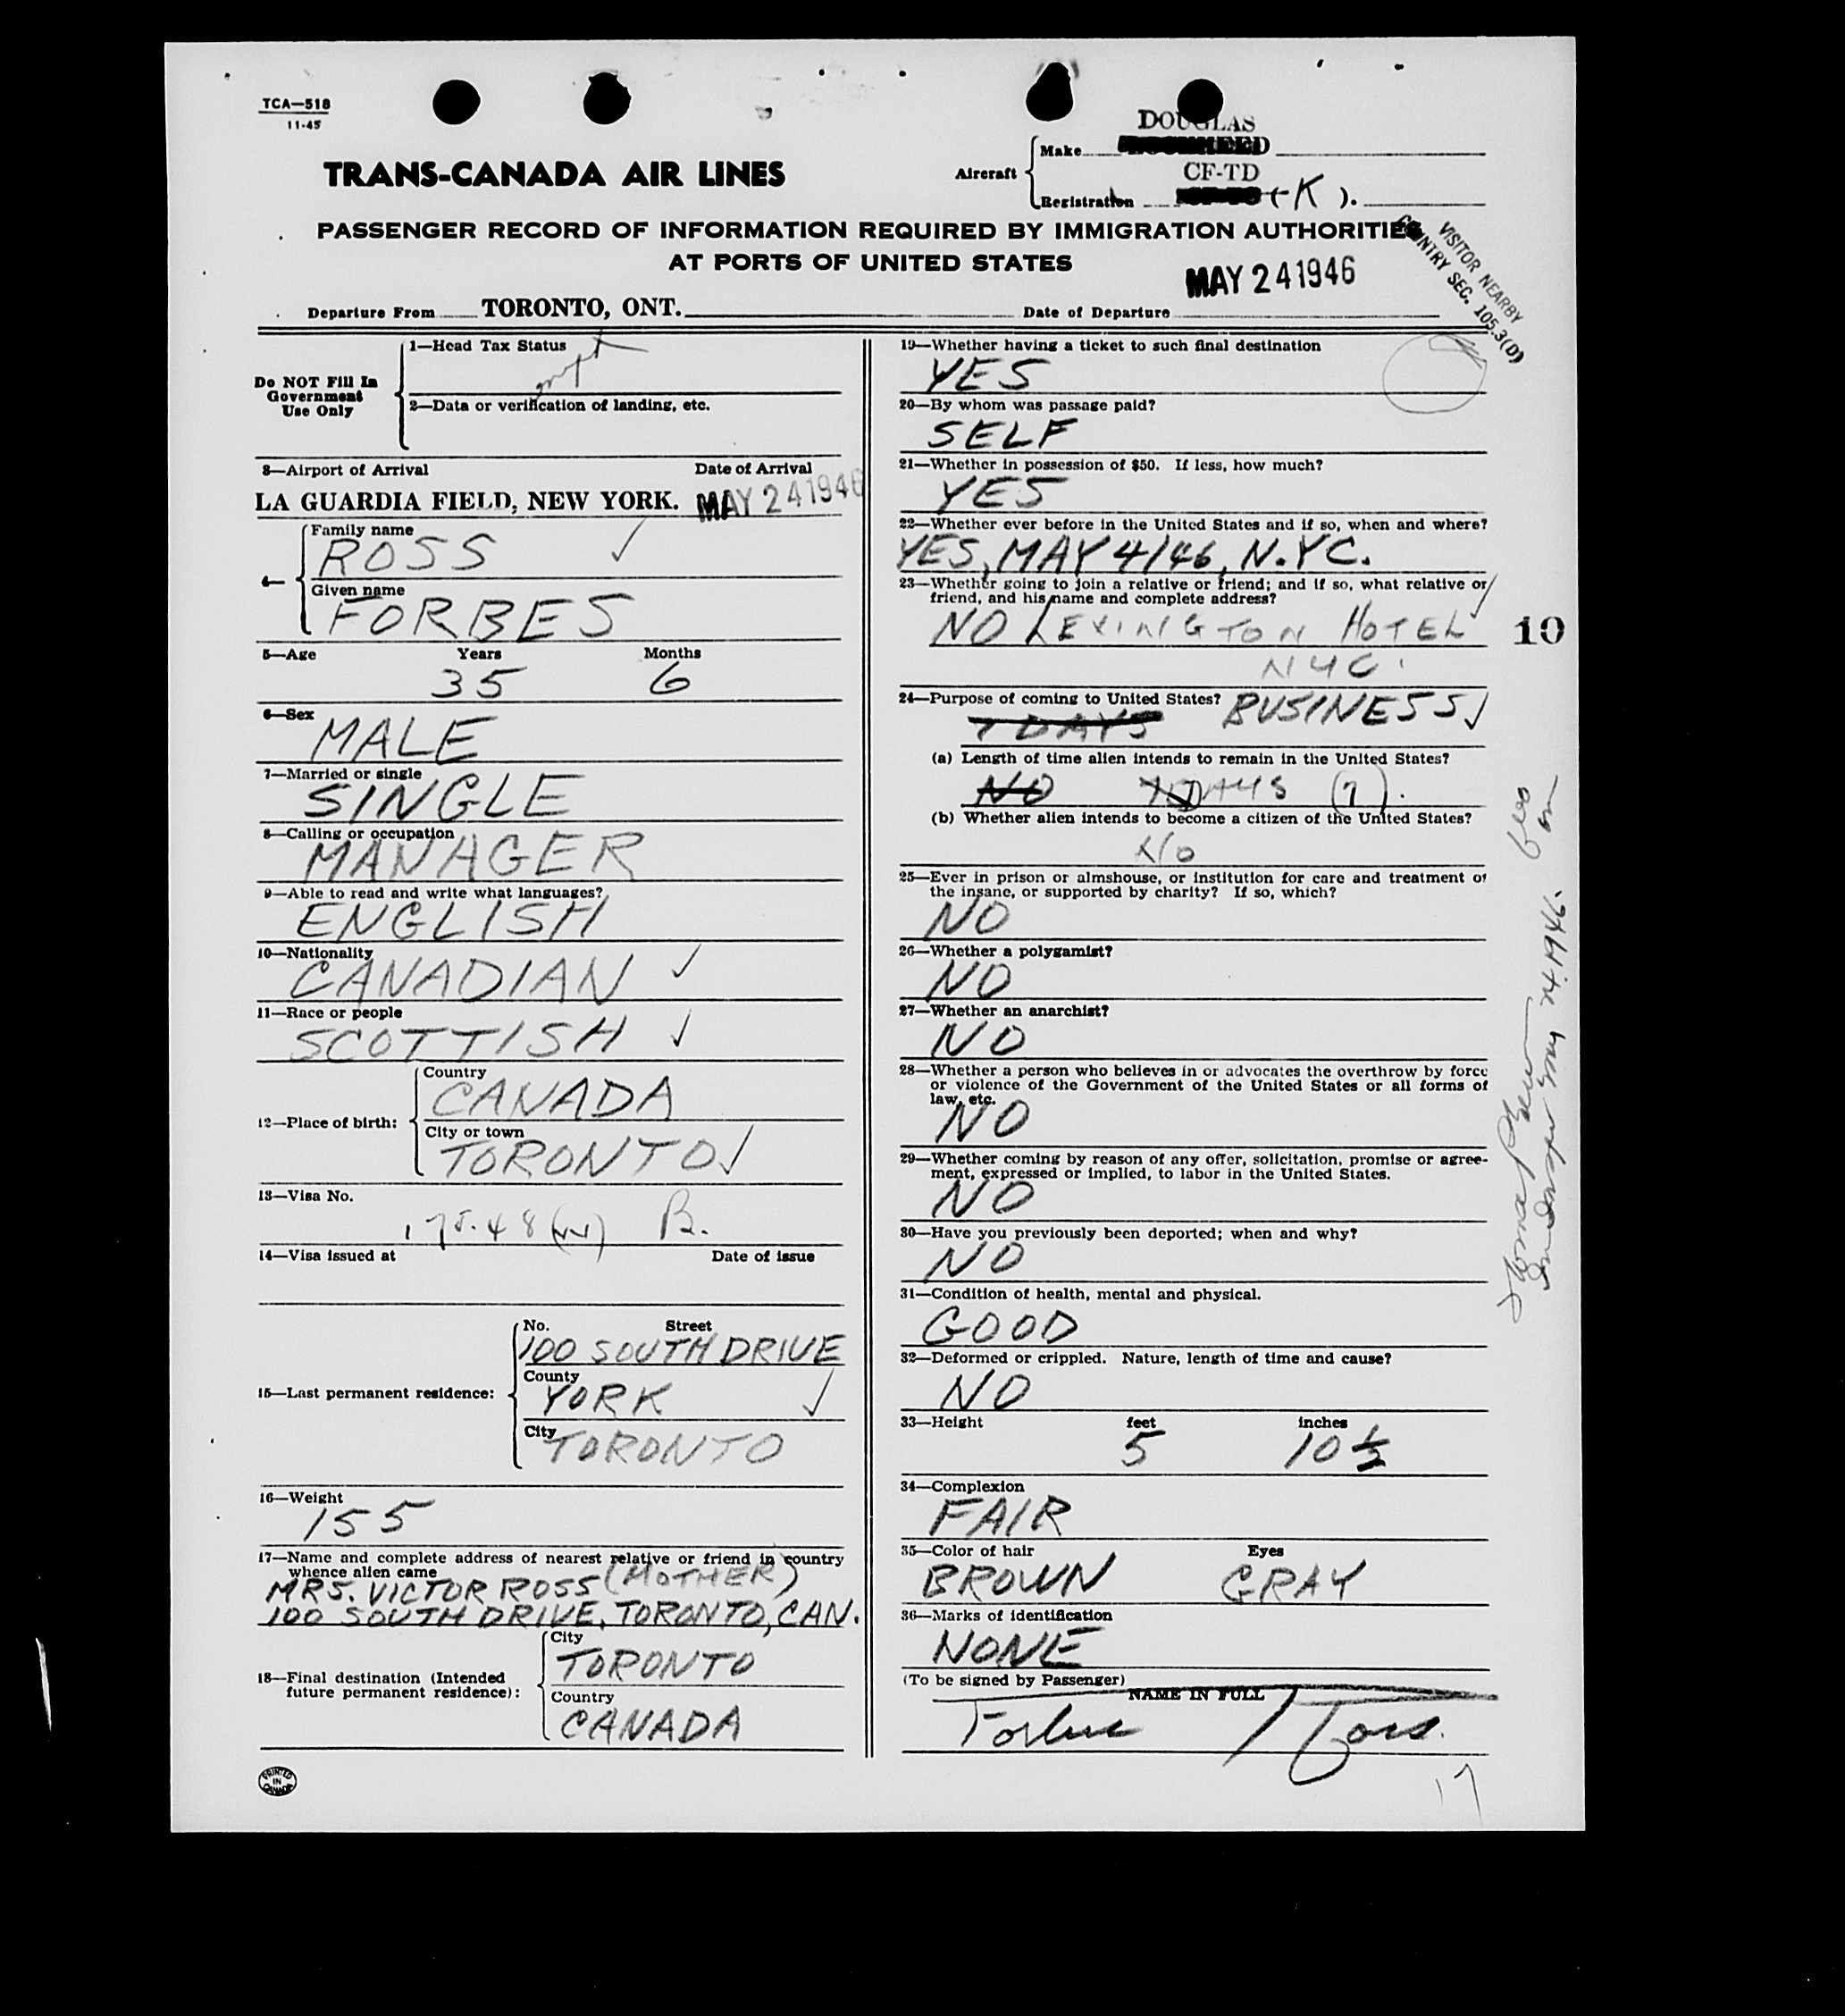 TCA—518
11-45
TRANS-CANADA AIR LINES
DOUGLAS
Aircraft
Make
CF-TD
Registration (-K).
PASSENGER RECORD OF INFORMATION REQUIRED BY IMMIGRATION AUTHORITIES
AT PORTS OF UNITED STATES
VISITOR NEARBY
COUNTRY SEC. 105.3(D)
MAY 24 1946
Departure From TORONTO, ONT. Date of Departure
Do NOT Fill In
Government
Use Only
1—Head Tax Status
2—Data or verification of landing, etc.
3—Airport of Arrival Date of Arrival
LA GUARDIA FIELD, NEW YORK. MAY 24 1946
4—
Family name
ROSS
Given name
FORBES
5—Age Years Months
35 6
6—Sex
MALE
7—Married or single
SINGLE
8—Calling or occupation
MANAGER
9—Able to read and write what languages?
ENGLISH
10—Nationality
CANADIAN
11—Race or people
SCOTTISH
12—Place of birth:
Country
CANADA
City or town
TORONTO
13—Visa No.
B.
14—Visa issued at Date of issue
15—Last permanent residence:
No. Street
100 SOUTH DRIVE
County
YORK
City
TORONTO
16—Weight
155
17—Name and complete address of nearest relative or friend in country
whence alien came
MRS. VICTOR ROSS (MOTHER)
100 SOUTH DRIVE, TORONTO, CAN.
18—Final destination (Intended
future permanent residence):
City
TORONTO
Country
CANADA
PRINTED
IN
CANADA
19—Whether having a ticket to such final destination
YES
20—By whom was passage paid?
SELF
21—Whether in possession of $50. If less, how much?
YES
22—Whether ever before in the United States and if so, when and where?
YES, MAY 4/46, N.Y.C.
23—Whether going to join a relative or friend; and if so, what relative or
friend, and his name and complete address?
NO LEXINGTON HOTEL
NYC.
10
24—Purpose of coming to United States? BUSINESS
7 DAYS
(a) Length of time alien intends to remain in the United States?
NO 7 DAYS (7).
(b) Whether alien intends to become a citizen of the United States?
No
25—Ever in prison or almshouse, or institution for care and treatment of
the insane, or supported by charity? If so, which?
NO
26—Whether a polygamist?
NO
27—Whether an anarchist?
NO
28—Whether a person who believes in or advocates the overthrow by force
or violence of the Government of the United States or all forms of
law, etc.
NO
29—Whether coming by reason of any offer, solicitation, promise or agree-
ment, expressed or implied, to labor in the United States.
NO
30—Have you previously been deported; when and why?
NO
31—Condition of health, mental and physical.
GOOD
32—Deformed or crippled. Nature, length of time and cause?
NO
33—Height feet inches
5 10 ½
34—Complexion
FAIR
35—Color of hair Eyes
BROWN GRAY
36—Marks of identification
NONE
(To be signed by Passenger)
NAME IN FULL
Forbes Ross.
17
May 24. 1946.